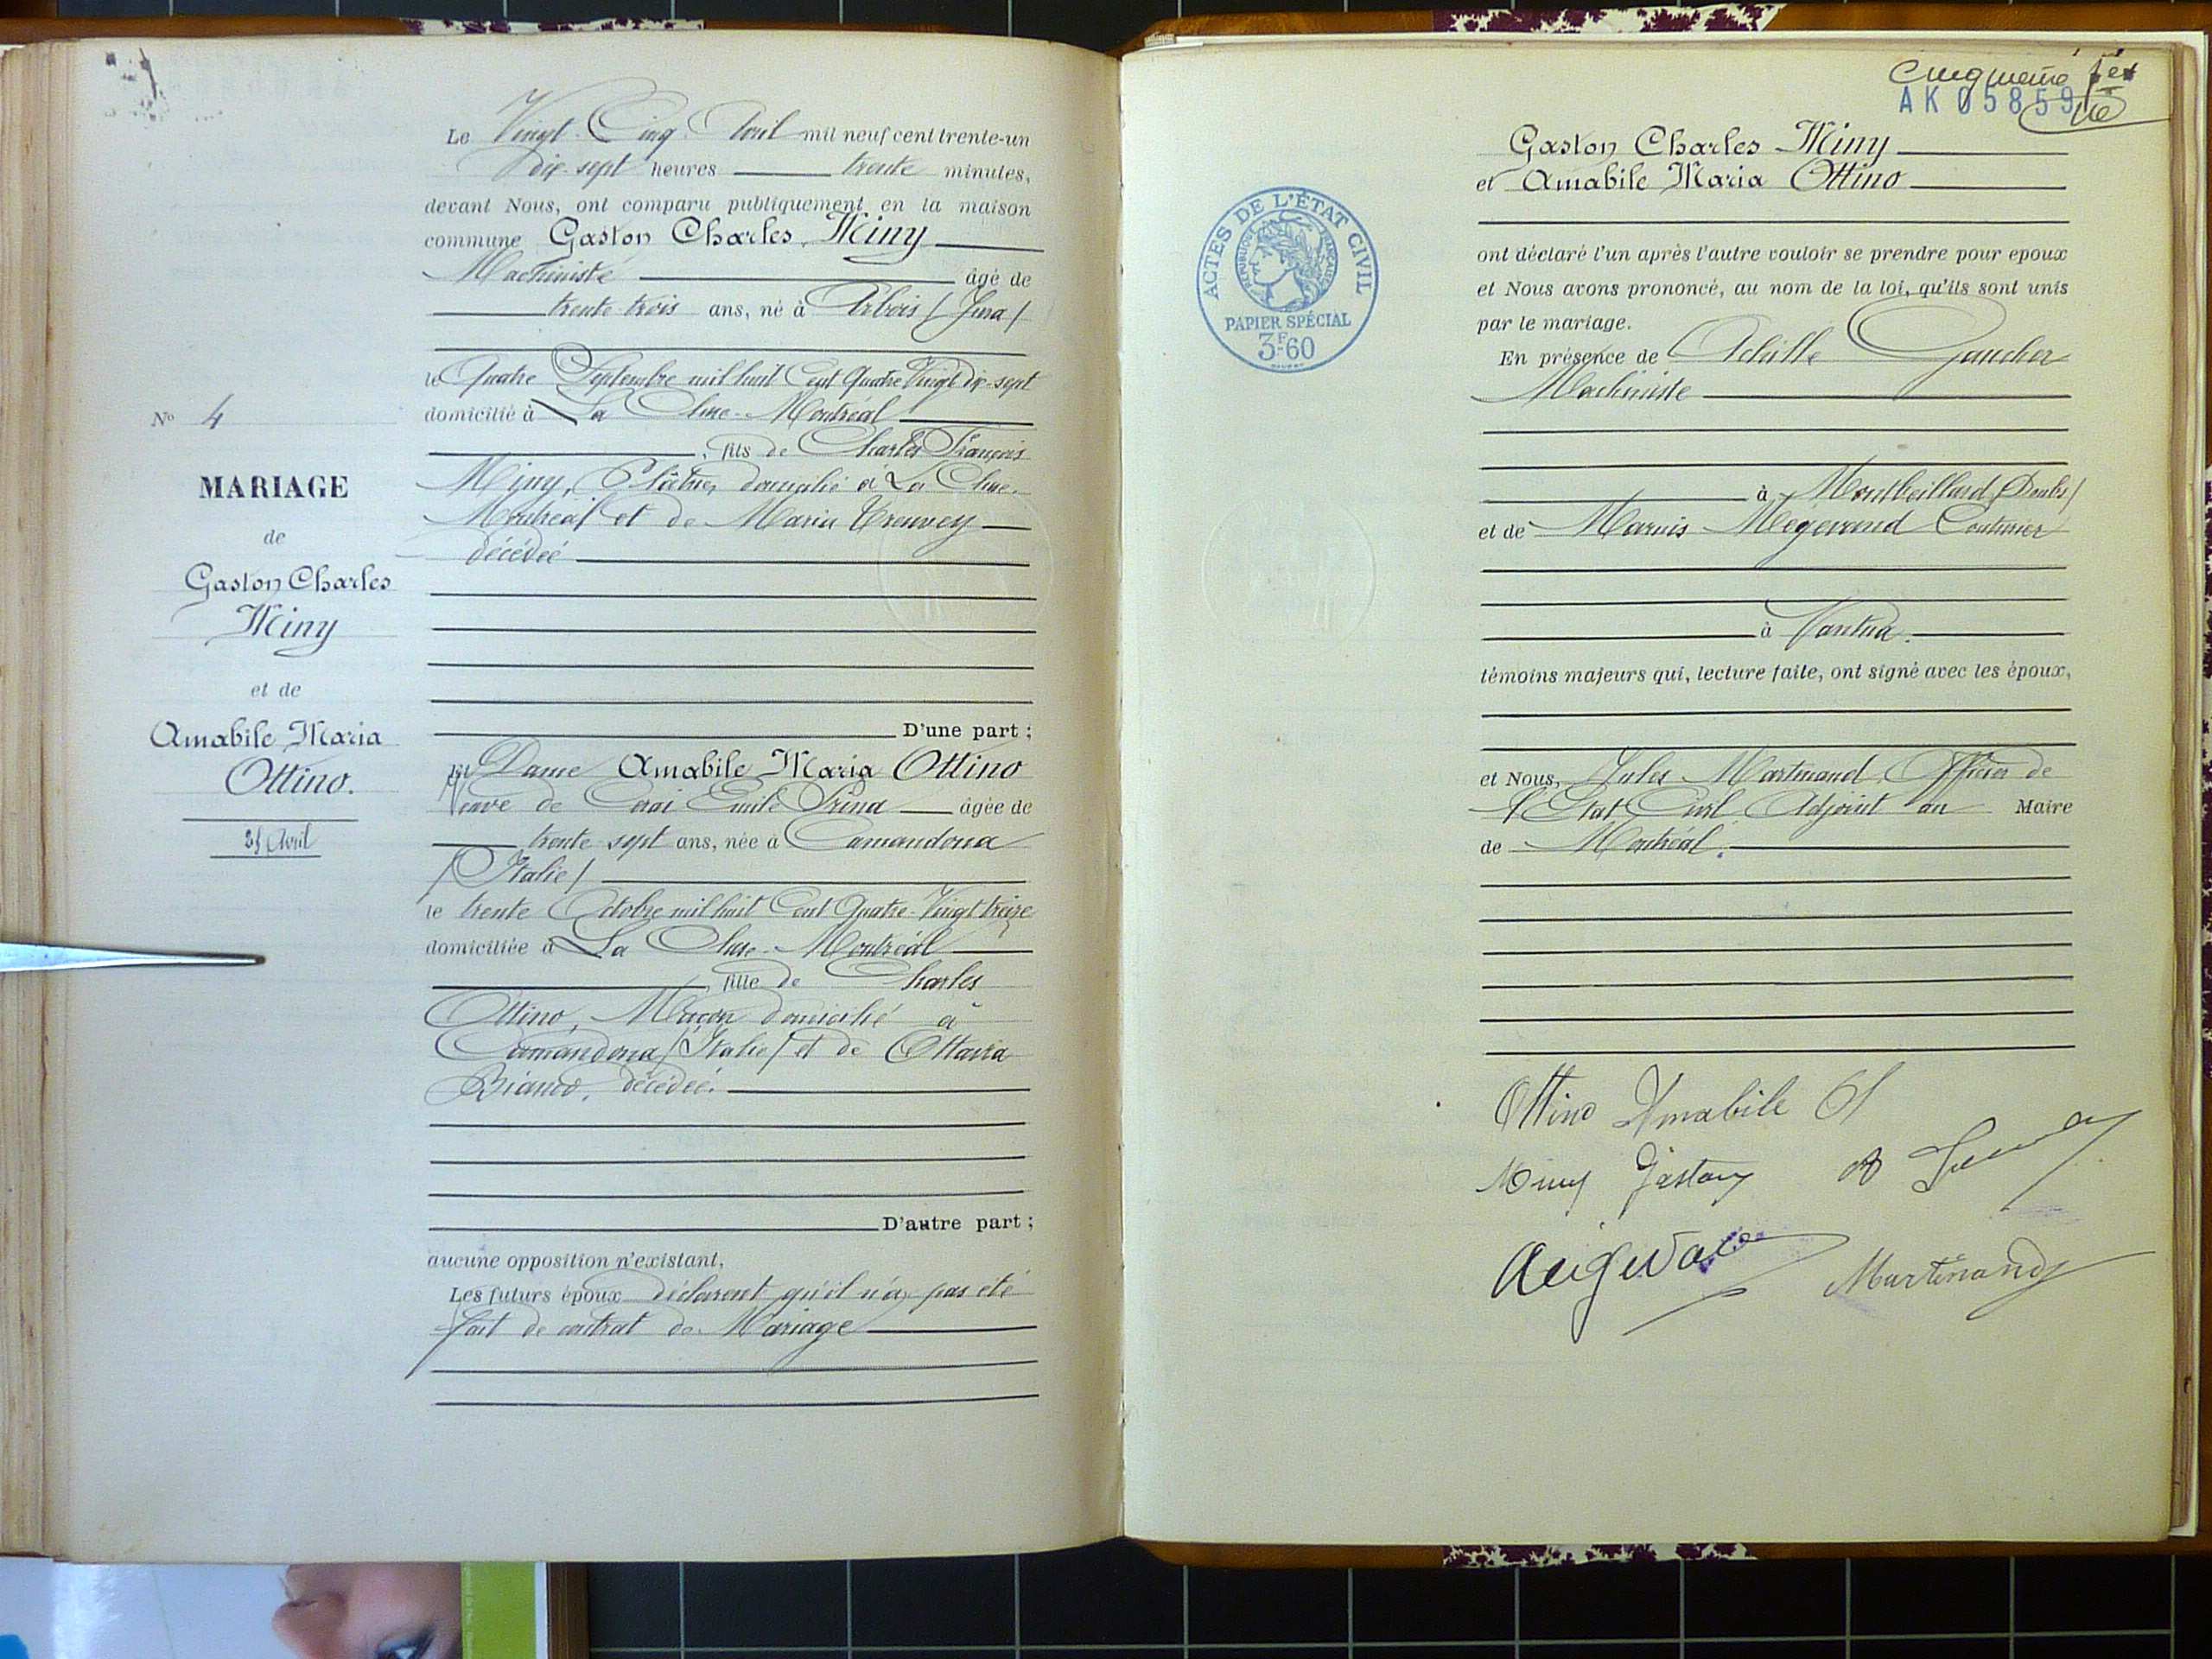 N° 4
MARIAGE
de
Gaston Charles
Miny
et de
Amabile Maria
Ottino.
25 Avril
Le Vingt-Cinq Avril mil neuf cent trente-un
dix-sept heures trente minutes,
devant Nous, ont comparu publiquement en la maison
commune Gaston Charles Miny
Machiniste âgé de
trente-trois ans, né à Arbois (Jura)
le Quatre Septembre mil huit Cent Quatre Vingt dix-sept
domicilié à La Cluse-Montréal
, fils de Charles François
Miny, Plâtrier, domicilié à La Cluse-
Montréal et de Maria
décédée
D'une part ;
Et Dame Amabile Maria Ottino
Veuve de Emile Prina âgée de
trente-sept ans, née à Camandona
(Italie)
le trente Octobre mil huit Cent Quatre-Vingt treize
domiciliée à La Cluse-Montréal
, fille de Charles
Ottino, Maçon domicilié à
Camandona (Italie) et de Ottavia
Bianco, décédée.
D'autre part ;
aucune opposition n'existant,
Les futurs époux déclarent qu'il n'a pas été
fait de contrat de Mariage
Cinquième
AK05859
Gaston Charles Miny
et Amabile Maria Ottino
ACTES DE L'ÉTAT CIVIL
RÉPUBLIQUE FRANÇAISE
PAPIER SPÉCIAL
3F60
ont déclaré l'un après l'autre vouloir se prendre pour epoux
et Nous avons prononcé, au nom de la loi, qu'ils sont unis
par le mariage.
En présence de Achille Gaucher
Machiniste
à Montbéliard (Doubs)
et de Marius Mégevand Couturier
à Nantua.
témoins majeurs qui, lecture faite, ont signé avec les époux,
et Nous, Jules Martinand, Officier de
l'Etat Civil, Adjoint au Maire
de Montréal.
Ottino Amabile
Miny Gaston
Martinand